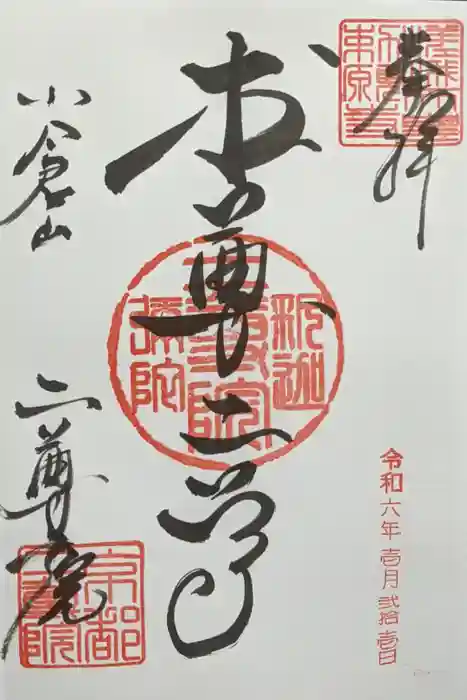 奉拝
本尊二尊
釈迦
二尊教院
弥陀
小倉山
二尊院
京都
二尊院
令和六年壱月弐拾壱日